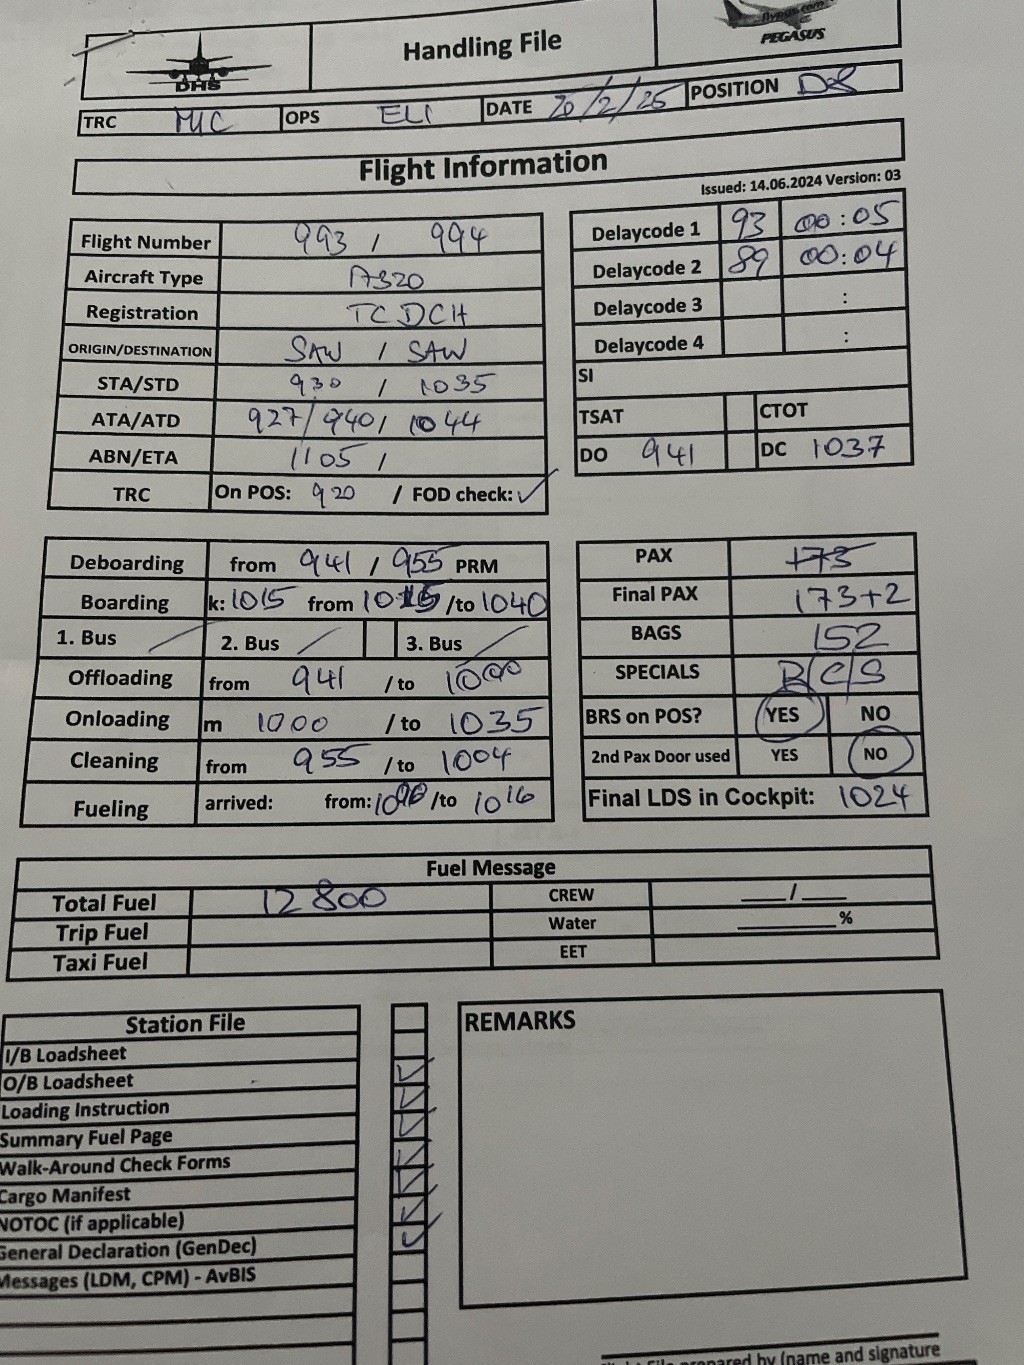 DHS Handling File flypgs.com PEGASUS
TRC MIC OPS ELI DATE 20/2/25 POSITION D08
Flight Information
Issued: 14.06.2024 Version: 03
Flight Number 993 / 994
Aircraft Type A320
Registration TCDCH
ORIGIN/DESTINATION SAW / SAW
STA/STD 930 / 1035
ATA/ATD 927/940/ 1044
ABN/ETA 1105 /
TRC On POS: 920 / FOD check: ✓
Delaycode 1 93 00:05
Delaycode 2 89 00:04
Delaycode 3 :
Delaycode 4 :
SI
TSAT CTOT
DO 941 DC 1037
Deboarding from 941 / 955 PRM
Boarding k: 1015 from 1015 /to 1040
1. Bus / 2. Bus / 3. Bus /
Offloading from 941 / to 1000
Onloading m 1000 / to 1035
Cleaning from 955 / to 1004
Fueling arrived: from: /to 1016
PAX 173
Final PAX 173+2
BAGS 152
SPECIALS B/C/S
BRS on POS? YES NO
2nd Pax Door used YES NO
Final LDS in Cockpit: 1024
Fuel Message
Total Fuel 12800 CREW ___/___
Trip Fuel Water ______%
Taxi Fuel EET
Station File
I/B Loadsheet
O/B Loadsheet ✓
Loading Instruction ✓
Summary Fuel Page ✓
Walk-Around Check Forms ✓
Cargo Manifest ✓
NOTOC (if applicable) ✓
General Declaration (GenDec) ✓
Messages (LDM, CPM) - AvBIS
REMARKS
prepared by (name and signature